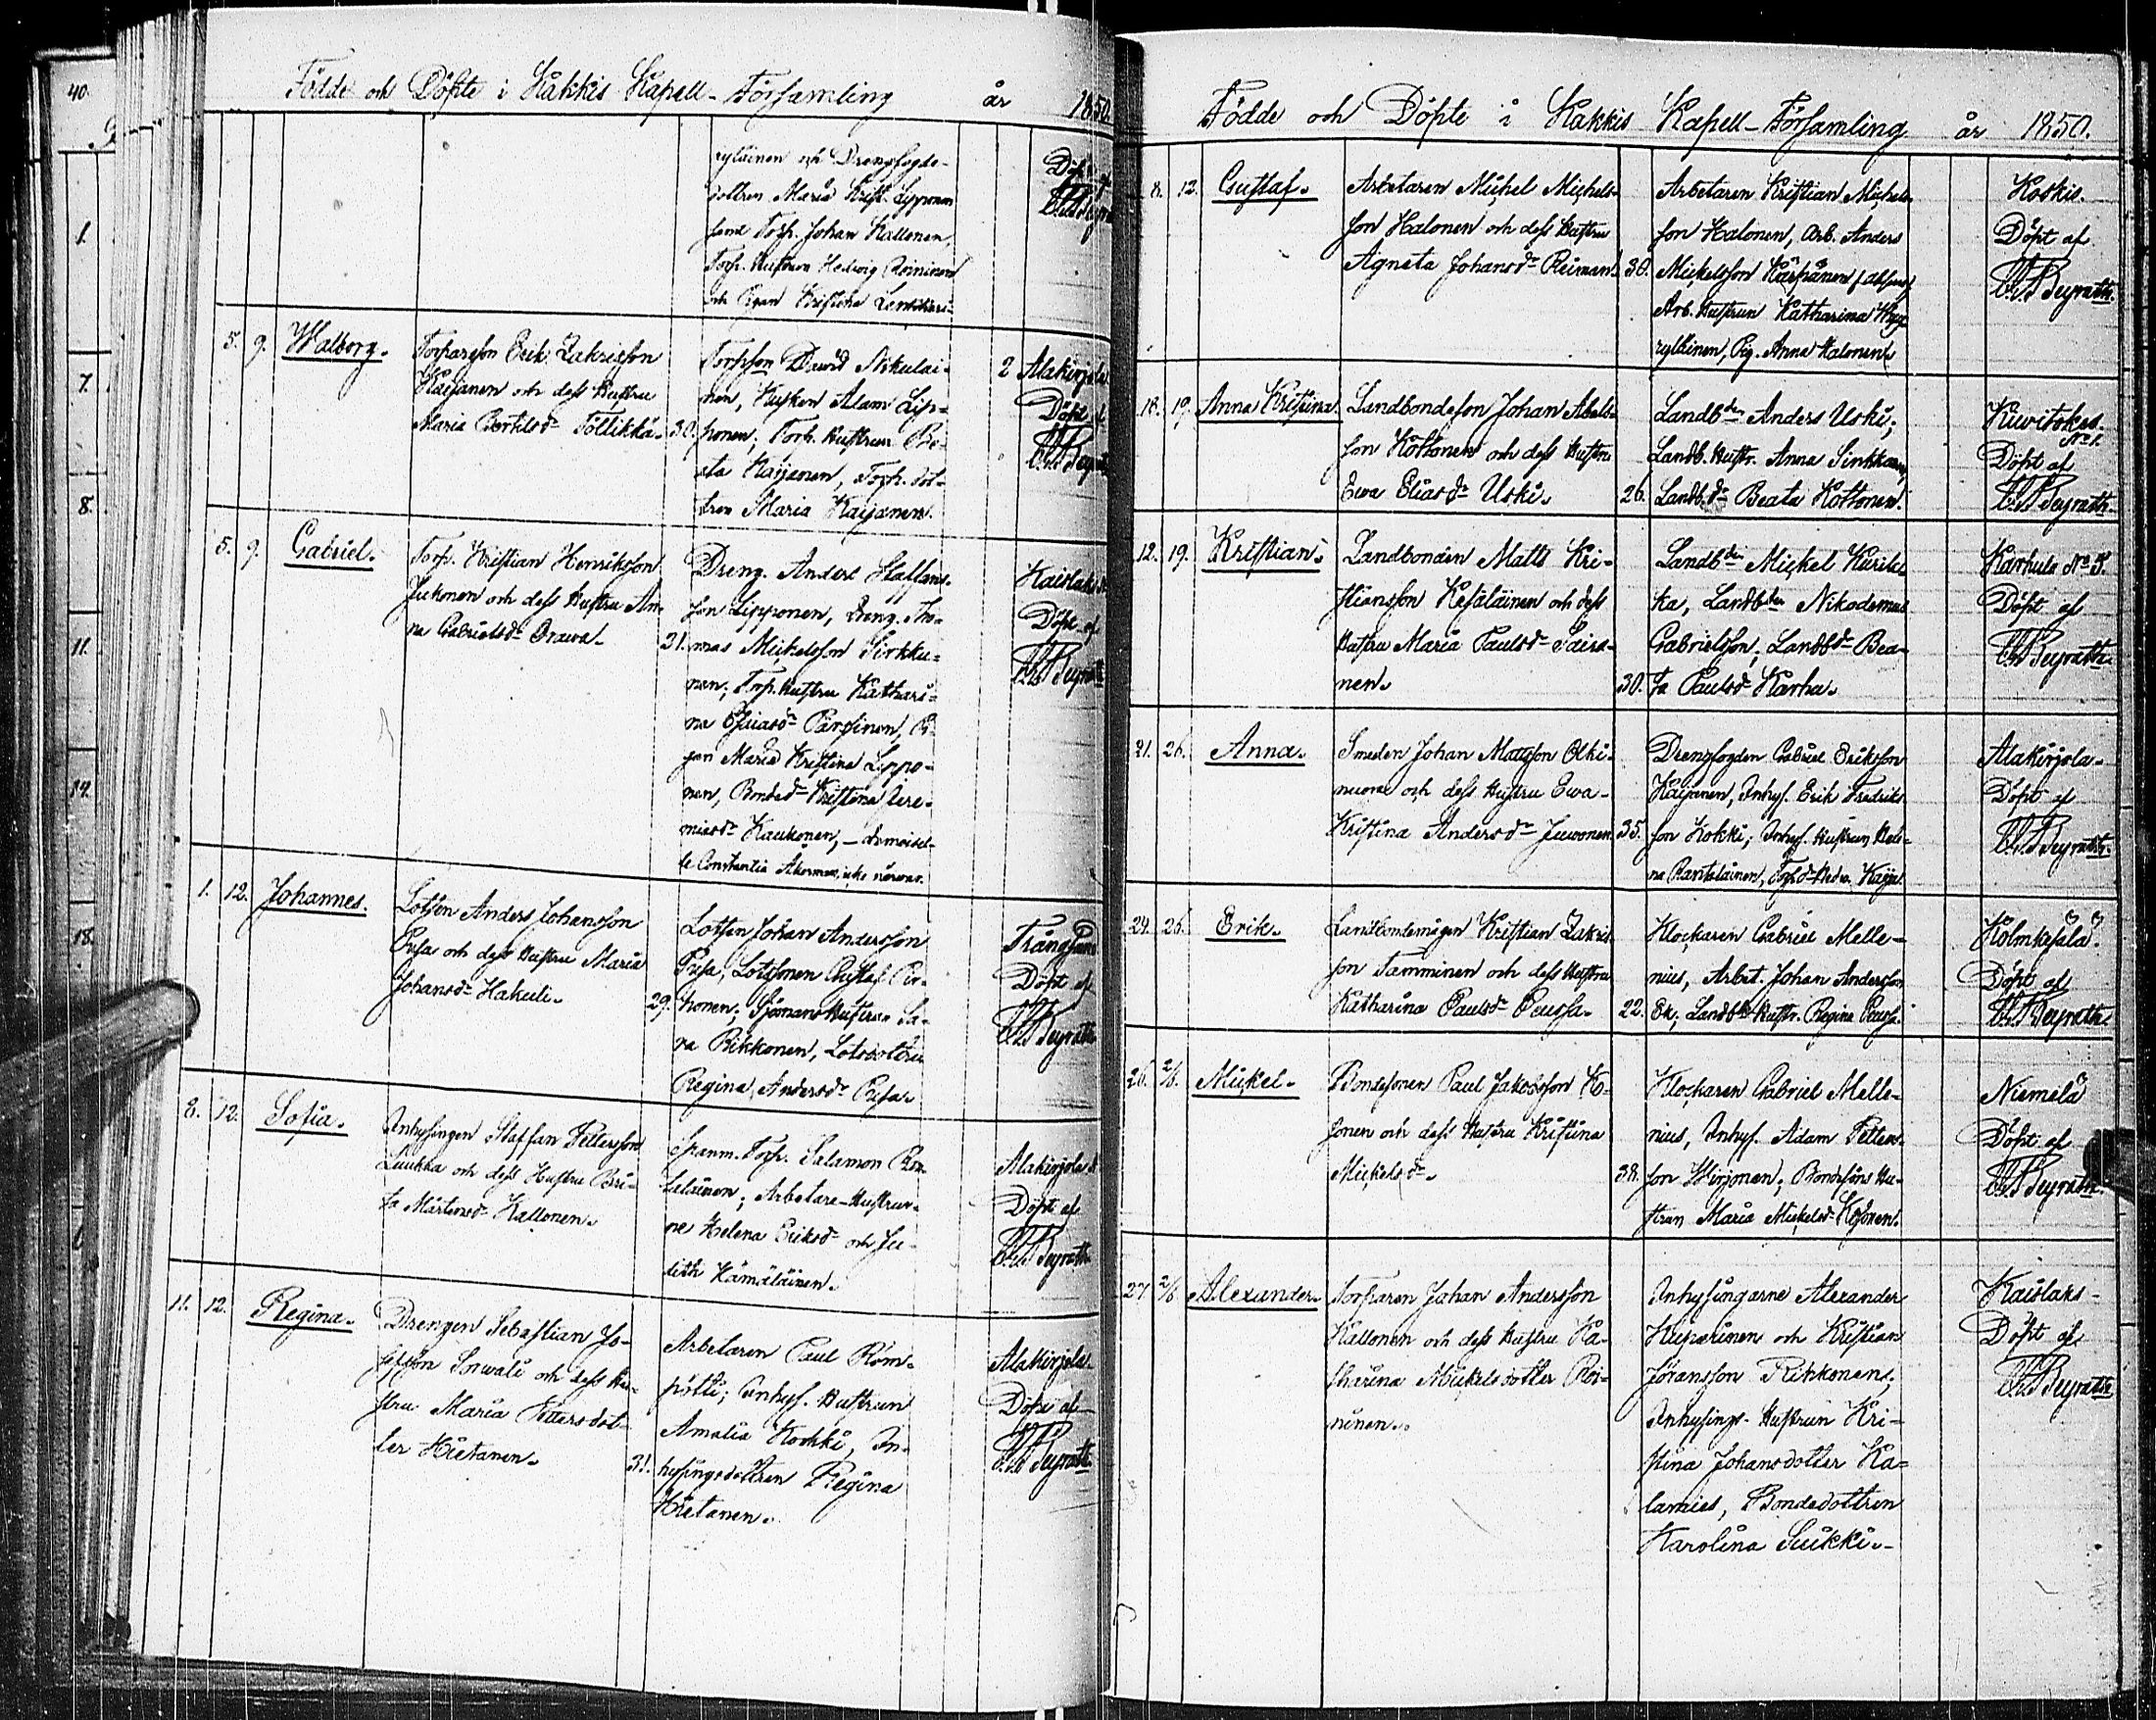 40.
1.
7.
8.
11.
14.
18.
Födde och Döpte i Kakkis Kapell-Församling år 1850.
ryläinen och Drengfogde-
dottren Maria Krist. Lipponen
Torp. Johan Kallonen,
Torp. Hustrun Hedvig Roininen
och Pigan Kristina
Döpt af
5. 9. Walborg.
Torparson Erik Zakrisson
Kaijanen och dess Hustru
Maria Bertilsdr Tollikka. 30.
Torpson David Nikulai-
nen, Husken Adam Lip-
ponen; Torp. Hustrun Be-
ata Kaijanen, Torp. dot-
tren Maria Kaijanen.
2 Alakirjola
Döpt af
5. 9. Gabriel.
Torp. Kristian Henriksson
Jukonen och dess Hustru An-
na Gabrielsdr Orawa. 21.
Dreng. Anders Staffans-
son Lipponen, Dreng. Tho-
mas Mickelsson Sirkku-
nen; Torp. Hustru Kathari-
na Esaiasdr Pärssinen, Pi-
gan Maria Kristina Lippo-
nen, Bondedr Kristina Jere-
miasdr Kaukonen, – demoisel-
le Constantia Åkerman, icke närvar.
Kaislaks
Döpt af
1. 12. Johannes.
Lotsen Anders Johansson
Pusa och dess Hustru Maria
Johansdr Hakuli. 29.
Lotsen Johan Andersson
Pusa, Lotssonen Gustaf Pir-
honen; Sjömans Hustrun Sa-
ra Rikkonen, Lotsdottren
Regina Andersdr Pusa.
Trångsund
Döpt af
8. 12. Sofia.
Inhysingen Staffan Pettersson
Liukka och dess Hustru Bri-
ta Mårtensdr Kallonen.
Torp. Salamon
Arbetare-Hustrur-
ne Helena Eriksdr och Ju-
dith Hämäläinen.
Alakirjola
Döpt af
11. 12. Regina.
Drengen Sebastian Jo-
sefsson Sorwali och dess Hu-
stru Maria Pettersdot-
ter Hietanen. 31.
Arbetaren Paul Röm-
pötti; Inhys. Hustrun
Amalia Kokki, In-
hysingsdottren Regina
Hietanen.
Alakirjola
Döpt af
Födde och Döpte i Kakkis Kapell-Församling år 1850.
8. 12. Gustaf.
Arbetaren Michel Michels-
son Halonen och dess Hustru
Agneta Johansdr Reiman. 30.
Arbetaren Kristian Michels-
son Halonen, Arb. Anders
Mickelsson Kärpänen
Arb. Hustrun Katharina Hyy-
ryläinen, Pig. Anna Halonen
Koskis.
Döpt af
18. 19. Anna Kristina.
Landbondeson Johan Abels-
son Kottonen och dess Hustru
Ewa Eliasdr Uski. 26.
Landbden Anders Uski;
Landb. Hustr. Anna Sinkkonen,
Landb.dr Beata Kottonen.
Kuwitokas.
No 1.
Döpt af
12. 19. Kristian.
Landbonden Matts Kri-
stiansson Kesäläinen och dess
Hustru Maria Paulsdr Saira-
nen. 30.
Landbden Mickel
Landbden Nikodemus
Gabrielsson; Landbdr Bea-
ta Paulsdr Karhu.
Karhula No 5.
Döpt af
21. 26. Anna.
Smeden Johan Mattsson Olki-
nuora och dess Hustru Ewa-
Kristina Andersdr Juwonen. 35.
Drengfogden Gabriel Eriksson
Kaijanen, Inhys. Erik Fredriks-
son Kokki; Inhys. Hustrun Hele-
na Rantalainen,
Alakirjola.
Döpt af
24. 26. Erik.
Landbondemågen Kristian Zakris-
son Tamminen och dess Hustru
Katharina Paulsdr Peussa. 22.
Klockaren Gabriel Melle-
nius, Arbet. Johan Andersson
Ek; Landb. Hustr. Regina Peussa.
Kolmkesälä.
Döpt af
26. 2/6. Mickel.
Bondesonen Paul Jakobsson Ko-
sonen och dess Hustru Kristina
Mickelsdr. 38.
Klockaren Gabriel Melle-
nius, Inhys. Adam Petters-
son Wirjonen; Bondesons Hu-
strun Maria Mickelsdr Kosonen.
Niemelä
Döpt af
27 2/6 Alexander.
Torparen Johan Andersson
Kallonen och dess Hustru Ka-
tharina Mickelsdotter Roi-
ninen.
Inhysingarne Alexander
Kuparinen och Kristian
Jöransson Rikkonen;
Inhysings-Hustrun Kri-
stina Johansdotter Ka-
lamies, Bondedottren
Karolina Suikki.
Kaislaks-
Döpt af